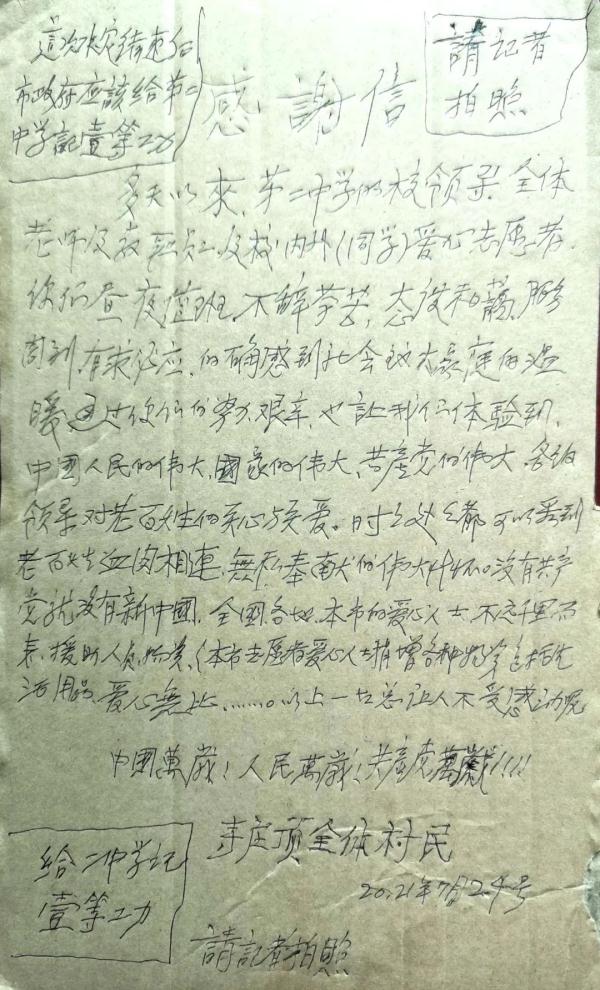 這次水灾
市政府应該给第二
中学記壹等功
請記者
拍照
感謝信
多天以來、第二中学的校领导、全体
老师及教职员工及校内外(同学)爱心志愿者.
你们昼夜值班、不辞劳苦,态度和藹,服务
周到,有求必应、的确感到社会主大家庭的温
暖 通过你们的努力艰辛,也让我们体验到,
中國人民的偉大,國家的偉大、共產党的偉大、各级
领导对老百姓的关心与关爱。时时处处都可以看到
老百姓血肉相連、無私奉献的偉大情怀。没有共产
党就没有新中國、全國各地、本市的爱心人士、不远千里而
来、援助人员、物资、(本市志愿者爱心人士捐增各种物资包括生
活用品、爱心無比........以上一切怎让人不受感动呢
中國萬歲!人民萬歲!共產党萬歲!!!!
李庄项全体村民
20.21年7月24号
给二中学记
壹等功
請記者拍照